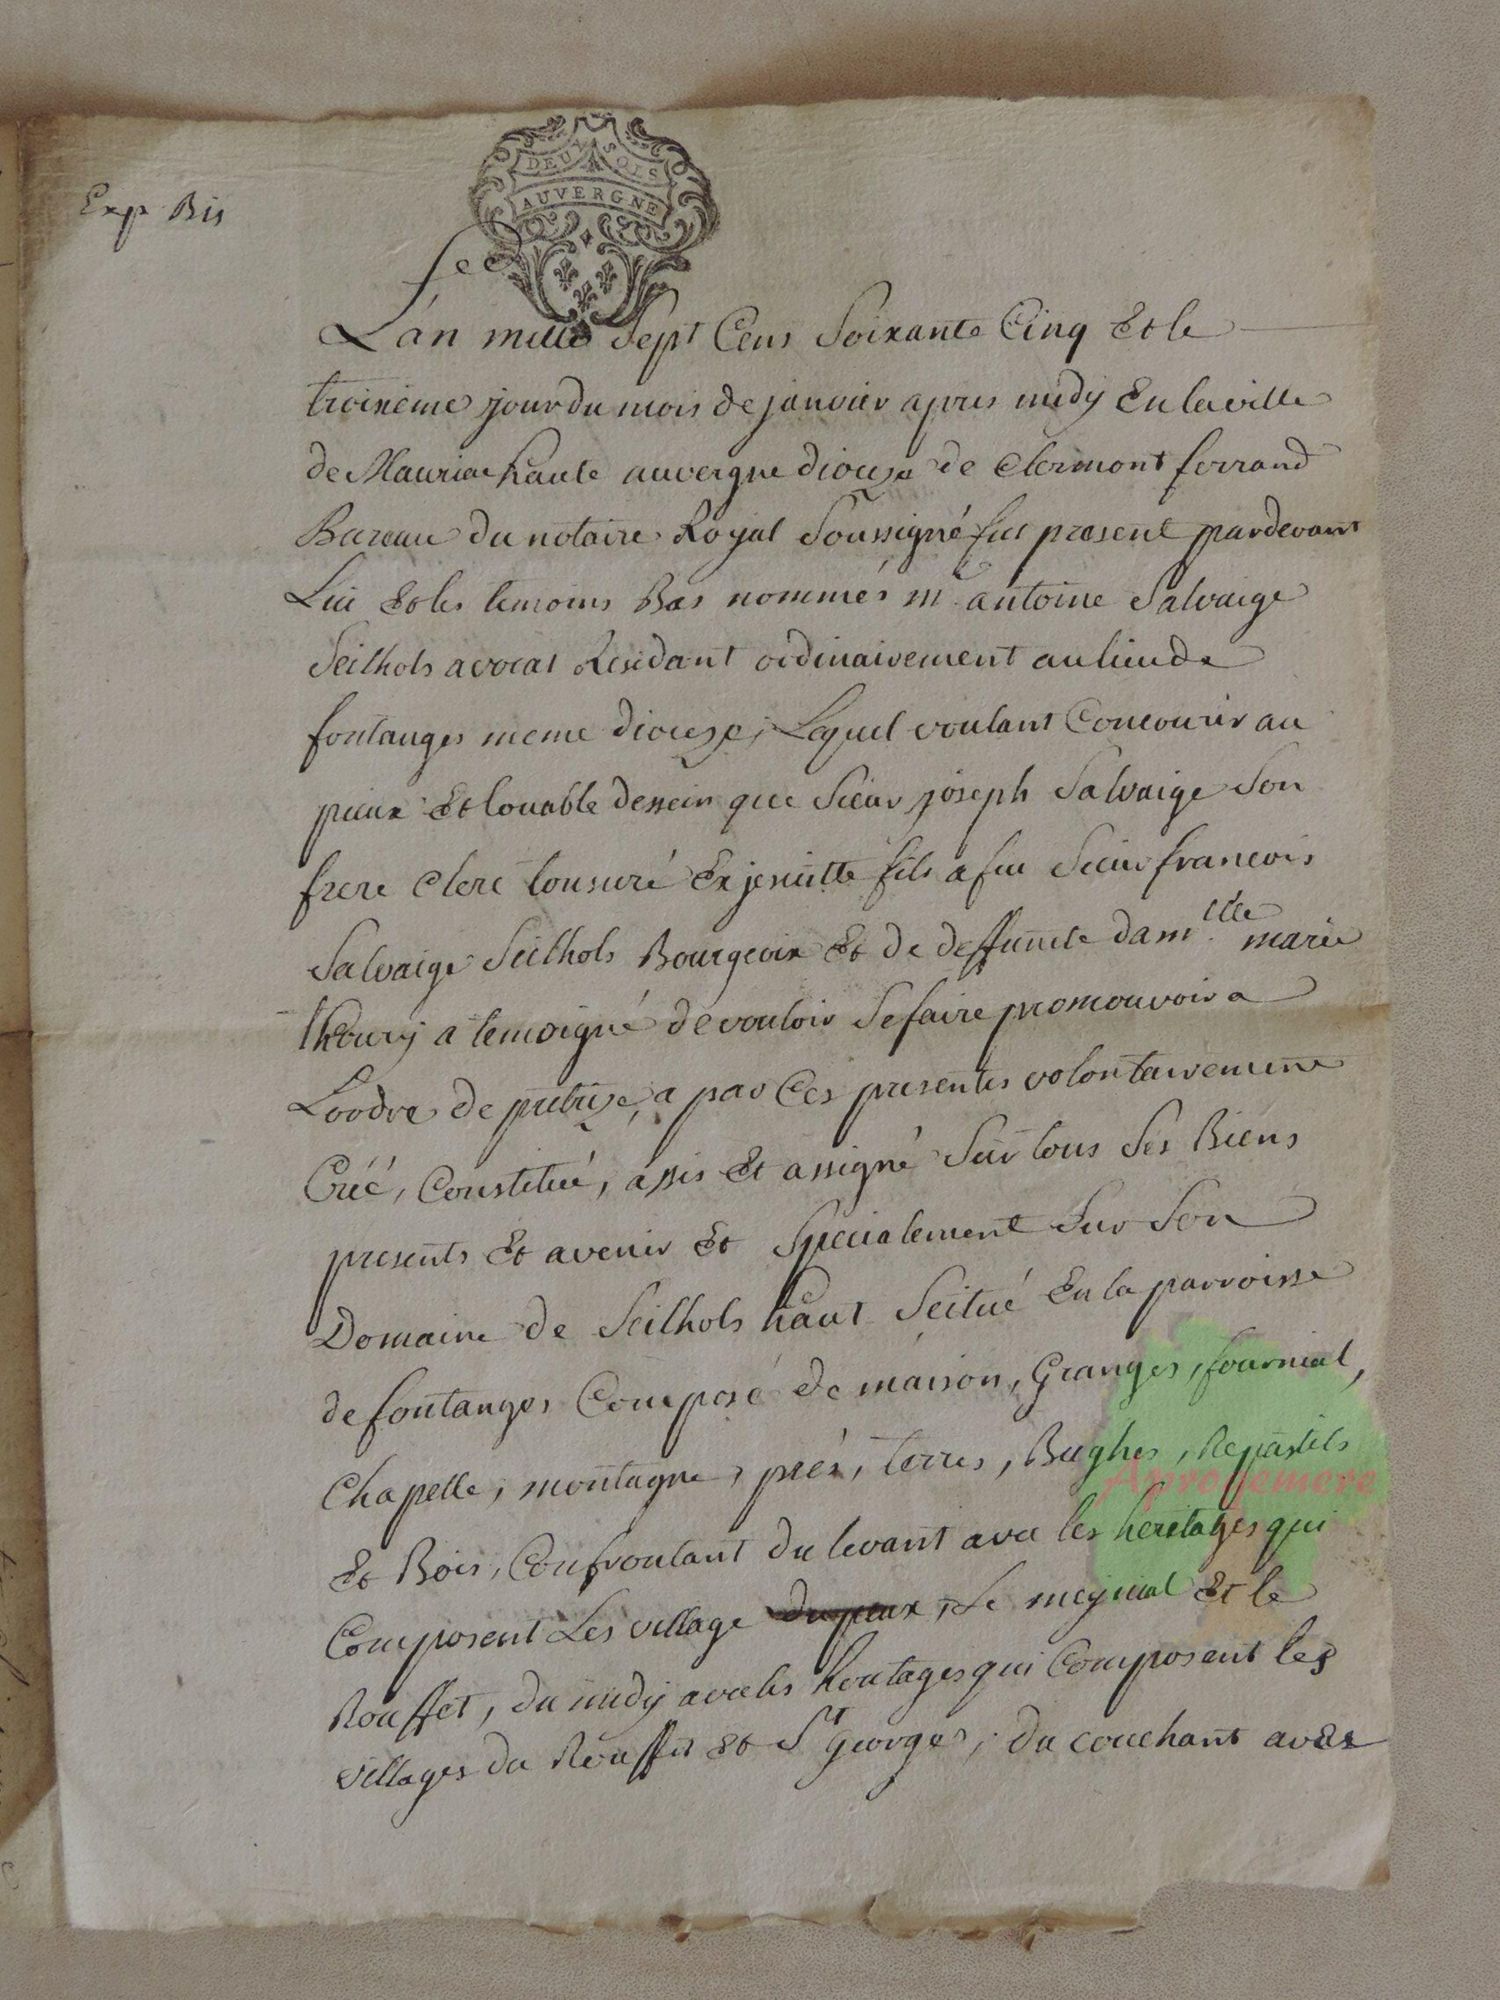 DEUX SOLS
AUVERGNE
Exp Bis
L'an mille Sept Cens Soixante Cinq Et le
troisieme jour du mois de janvier apres midy En la ville
de Mauriac haute auvergne dioceze de Clermont ferrand
Bureau du notaire Royal Soussigné fut present pardevant
Lui Et les temoins Bas nommés m.e antoine Salvaige
Seilhols avocat Residant ordinairement au lieu de
fontanges meme dioceze, Lequel voulant Concourir au
pieux Et louable dessein que Sieur joseph Salvaige Son
frere Clerc tonsuré Exjesuitte fils a feu Sieur francois
Salvaige Seilhols Bourgeois Et de deffunte dam.elle marie
theury a temoigné de vouloir Se faire promouvoir a
Lordre de pretrize, a par Ces presentes volontairement
Créé, Constitué, assis Et assigné Sur tous Ses Biens
presents Et avenir Et Specialement Sur Son
Domaine de Seilhols haut Scitué En la parroisse
de fontanges Composé de maison, Granges, fournial,
Chapelle, montagne, prés, terres, Bughes, Repastils
Aprogemere
Et Bois, Confrontant du levant avec les heritages qui
Composent Les village du peux, Le meynial Et le
Rouffet, du midy avec les heritages qui Composent les
villages du Rouffet Et St George, du couchant avec